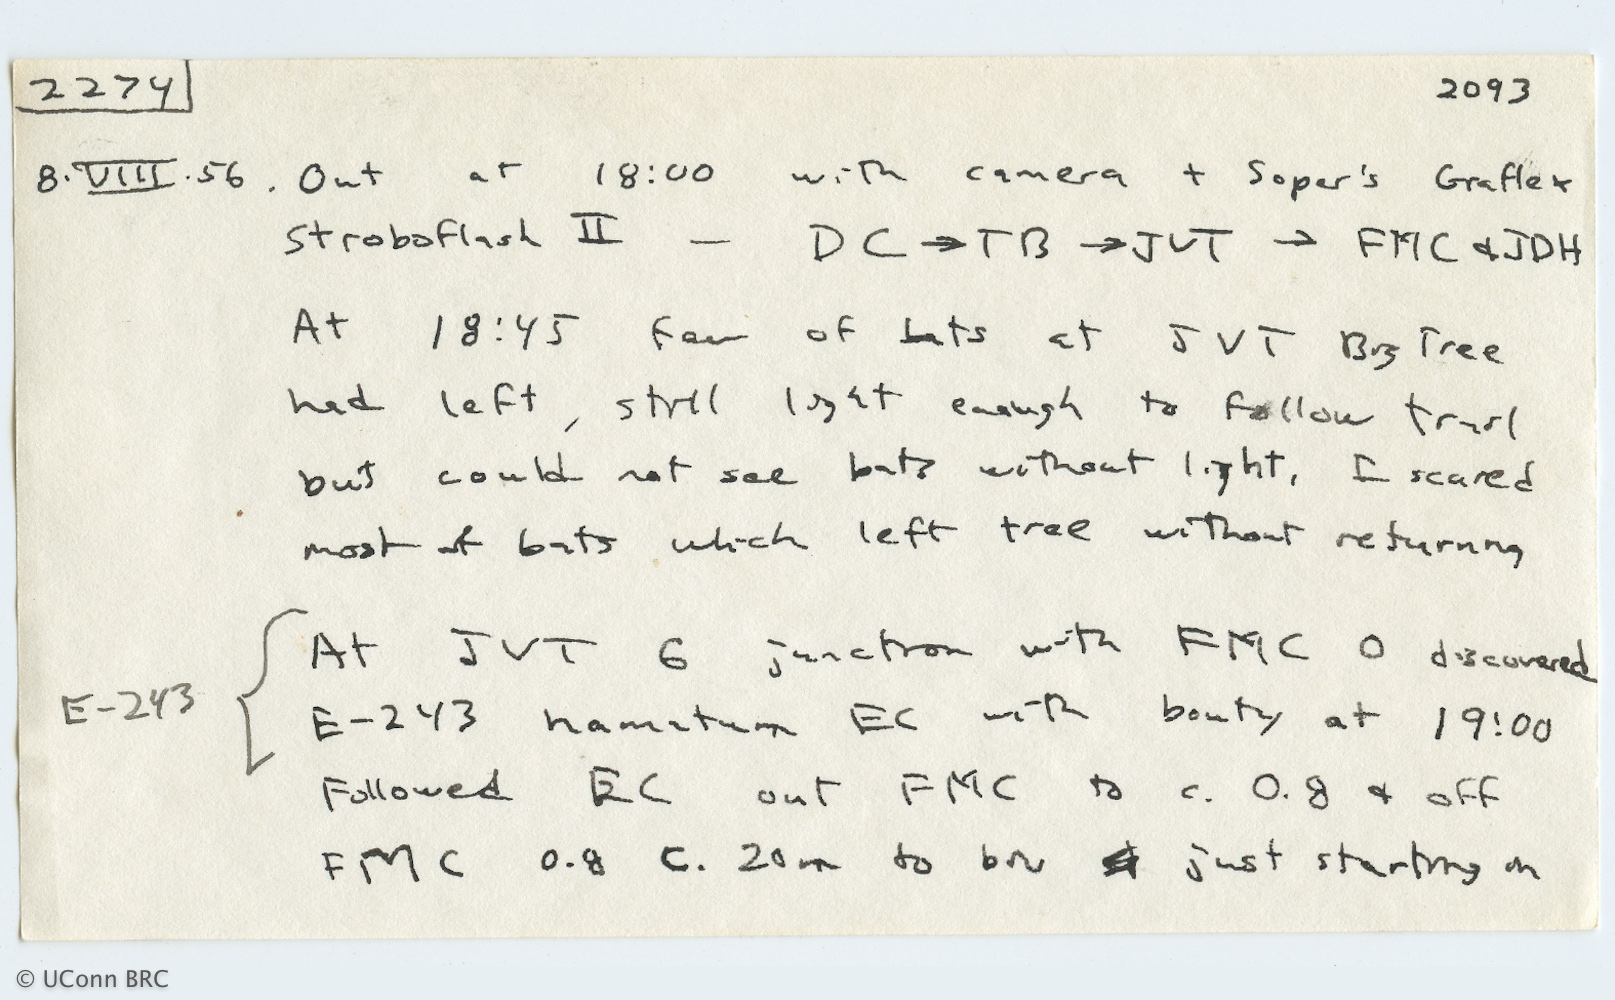 2274 2093
8.VIII.56. Out at 18:00 with camera + Soper's Graflex
Stroboflash II — DC → TB → JVT → FMC & JDH
At 18:45 few of bats at JVT Big Tree
had left, still light enough to follow trail
but could not see bats without light. I scared
most of bats which left tree without returning
At JVT 6 junction with FMC 0 discovered
E-243 E-243 hamatum EC with booty at 19:00
Followed EC out FMC to c. 0.8 & off
FMC 0.8 c. 20m to biv just starting in
© UConn BRC